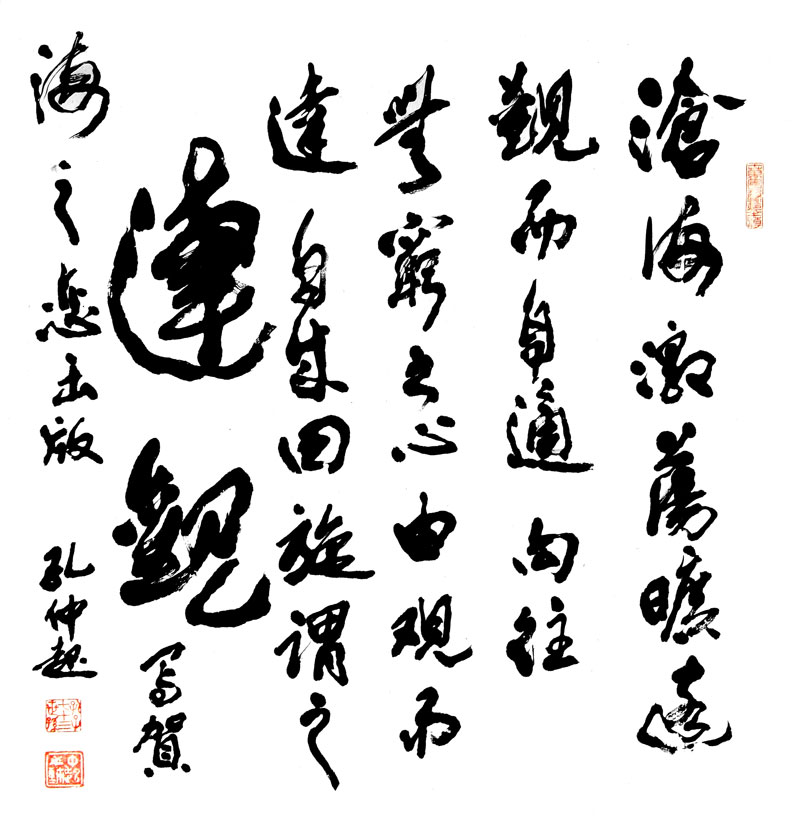 滄海激蕩曠遠
觀而自適向往
無窮之心由观而
達自成回旋謂之
達觀 写賀
海之恋出版 孔仲起